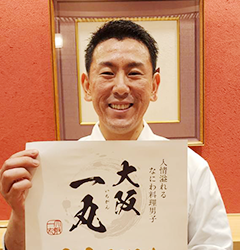 人情溢れる
なにわ料理男子
大阪
いちがん
一丸